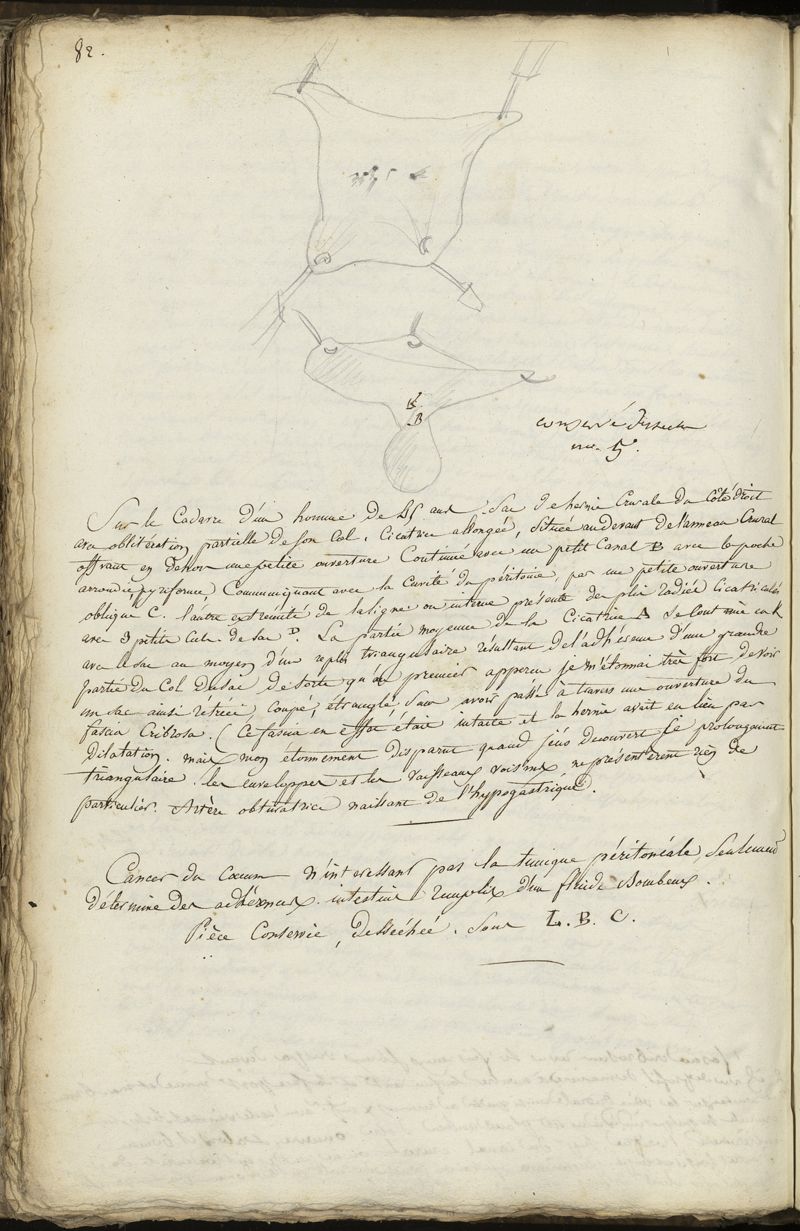 82.
conservé
no. 5.
Sur le Cadavre d'un homme de 25 ans, Sac de hernie Crurale du Côté droit
avec oblitération partielle de son Col. Cicatrice allongée, située au devant de l'anneau Crural
offrant en dehors une petite ouverture Continuée avec un petit Canal B avec la poche
arrondie (pyriforme) Communiquant avec la Cavité du péritoine, par une petite ouverture
oblique C. l'autre extrémité de la ligne ou interne présente des plis radiés Cicatricules
avec 3 petits Culs de Sac D. La partie moyenne de la Cicatrice A Se Continue en K
avec le Sac au moyen d'un repli triangulaire résultant de l'adhésion d'une grande
partie du Col du Sac de Sorte qu'au premier apperçu je m'étonnai très fort de voir
un Sac ainsi rétréci, coupé, étranglé, Sans avoir passé à travers une ouverture du
fascia Cribrosa. (Ce fascia en effet était intacte et la hernie avait eu lieu par
Dilatation. mais mon étonnement disparut quand j'eus Découvert le prolongement
triangulaire. les enveloppes et les Vaisseaux voisins ne présentèrent rien de
particulier. Artère obturatrice naissant de l'hypogastrique.
Cancer du Cœcum N'interessant pas la tunique péritonéale, Seulement
détermine des adhérences. intestins remplis d'un fluide Bourbeux.
Pièce Conservée, Desséchée. Sous L. B. C.
B